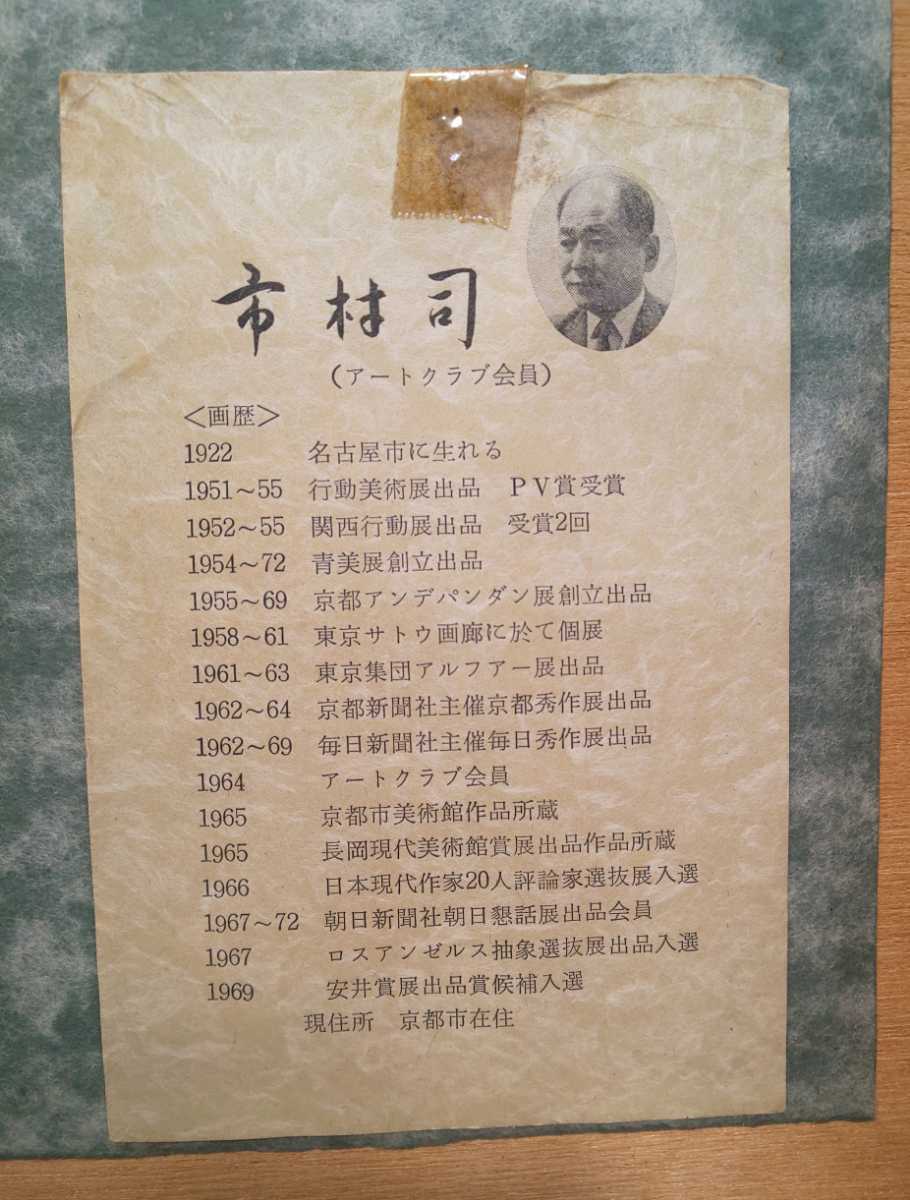 市村司
(アートクラブ会員)
<画歴>
1922 名古屋市に生れる
1951~55 行動美術展出品 PV賞受賞
1952~55 関西行動展出品 受賞2回
1954~72 青美展創立出品
1955~69 京都アンデパンダン展創立出品
1958~61 東京サトウ画廊に於て個展
1961~63 東京集団アルフアー展出品
1962~64 京都新聞社主催京都秀作展出品
1962~69 毎日新聞社主催毎日秀作展出品
1964 アートクラブ会員
1965 京都市美術館作品所蔵
1965 長岡現代美術館賞展出品作品所蔵
1966 日本現代作家20人評論家選抜展入選
1967~72 朝日新聞社朝日懇話展出品会員
1967 ロスアンゼルス抽象選抜展出品入選
1969 安井賞展出品賞候補入選
現住所 京都市在住